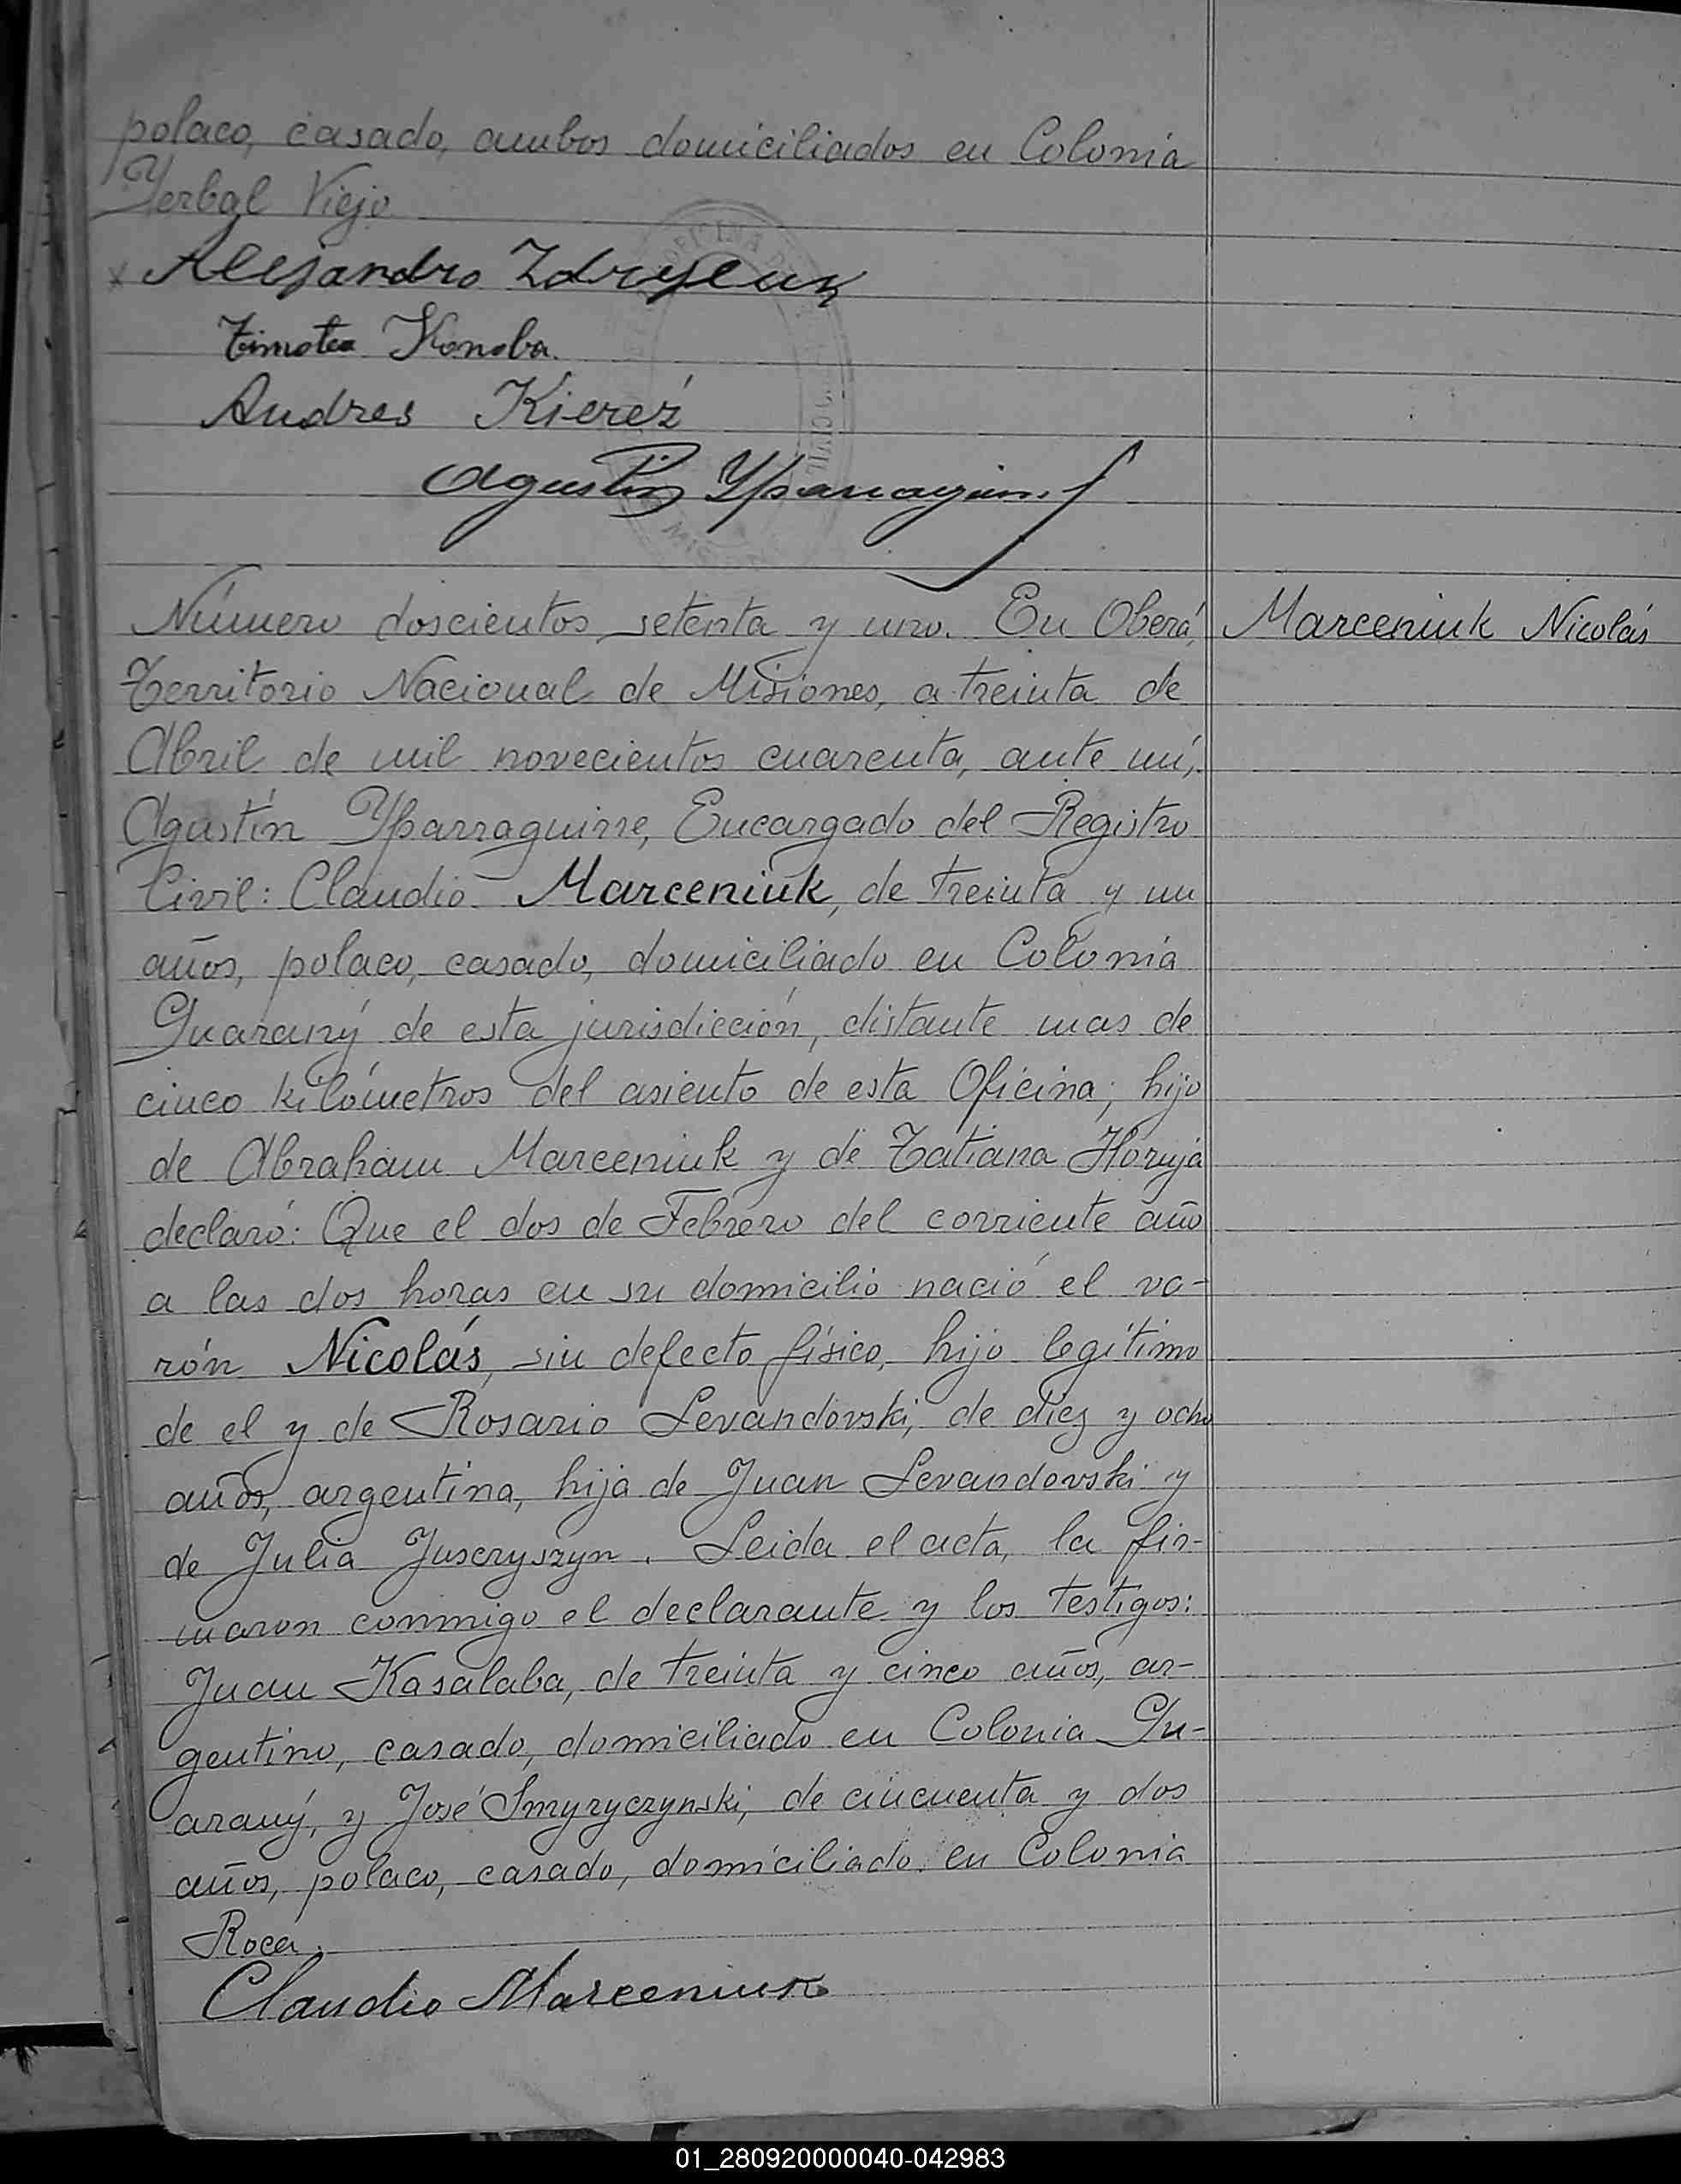 polaco, casado, ambos domiciliados en Colonia
Yerbal Viejo
Alejandro
Timoteo Konoba.
Andres Kiereź
Agustín Yparraguirre
OFICINA
CIVIL
Número doscientos setenta y uno. En Oberá,
Marceniuk Nicolás
Territorio Nacional de Misiones, a treinta de
Abril de mil novecientos cuarenta, ante mí,
Agustín Yparraguirre, Encargado del Registro
Civil: Claudio Marceniuk, de treinta y un
años, polaco, casado, domiciliado en Colonia
Guarany de esta jurisdicción, distante mas de
cinco kilómetros del asiento de esta Oficina; hijo
de Abraham Marceniuk y de Tatiana Horuja
declaró: Que el dos de Febrero del corriente año
a las dos horas en su domicilio nació el va-
rón Nicolás, sin defecto físico, hijo legítimo
de el y de Rosario Levandovski, de diez y ocho
años, argentina, hija de Juan Levandovski y
de Julia Juscryszyn. Leida el acta, la fir-
maron conmigo el declarante y los testigos:
Juan Kasalaba, de treinta y cinco años, ar-
gentino, casado, domiciliado en Colonia Gu-
arany, y José Smyryczynski, de cincuenta y dos
años, polaco, casado, domiciliado en Colonia
Roca.
Claudio Marceniuk
01_280920000040-042983